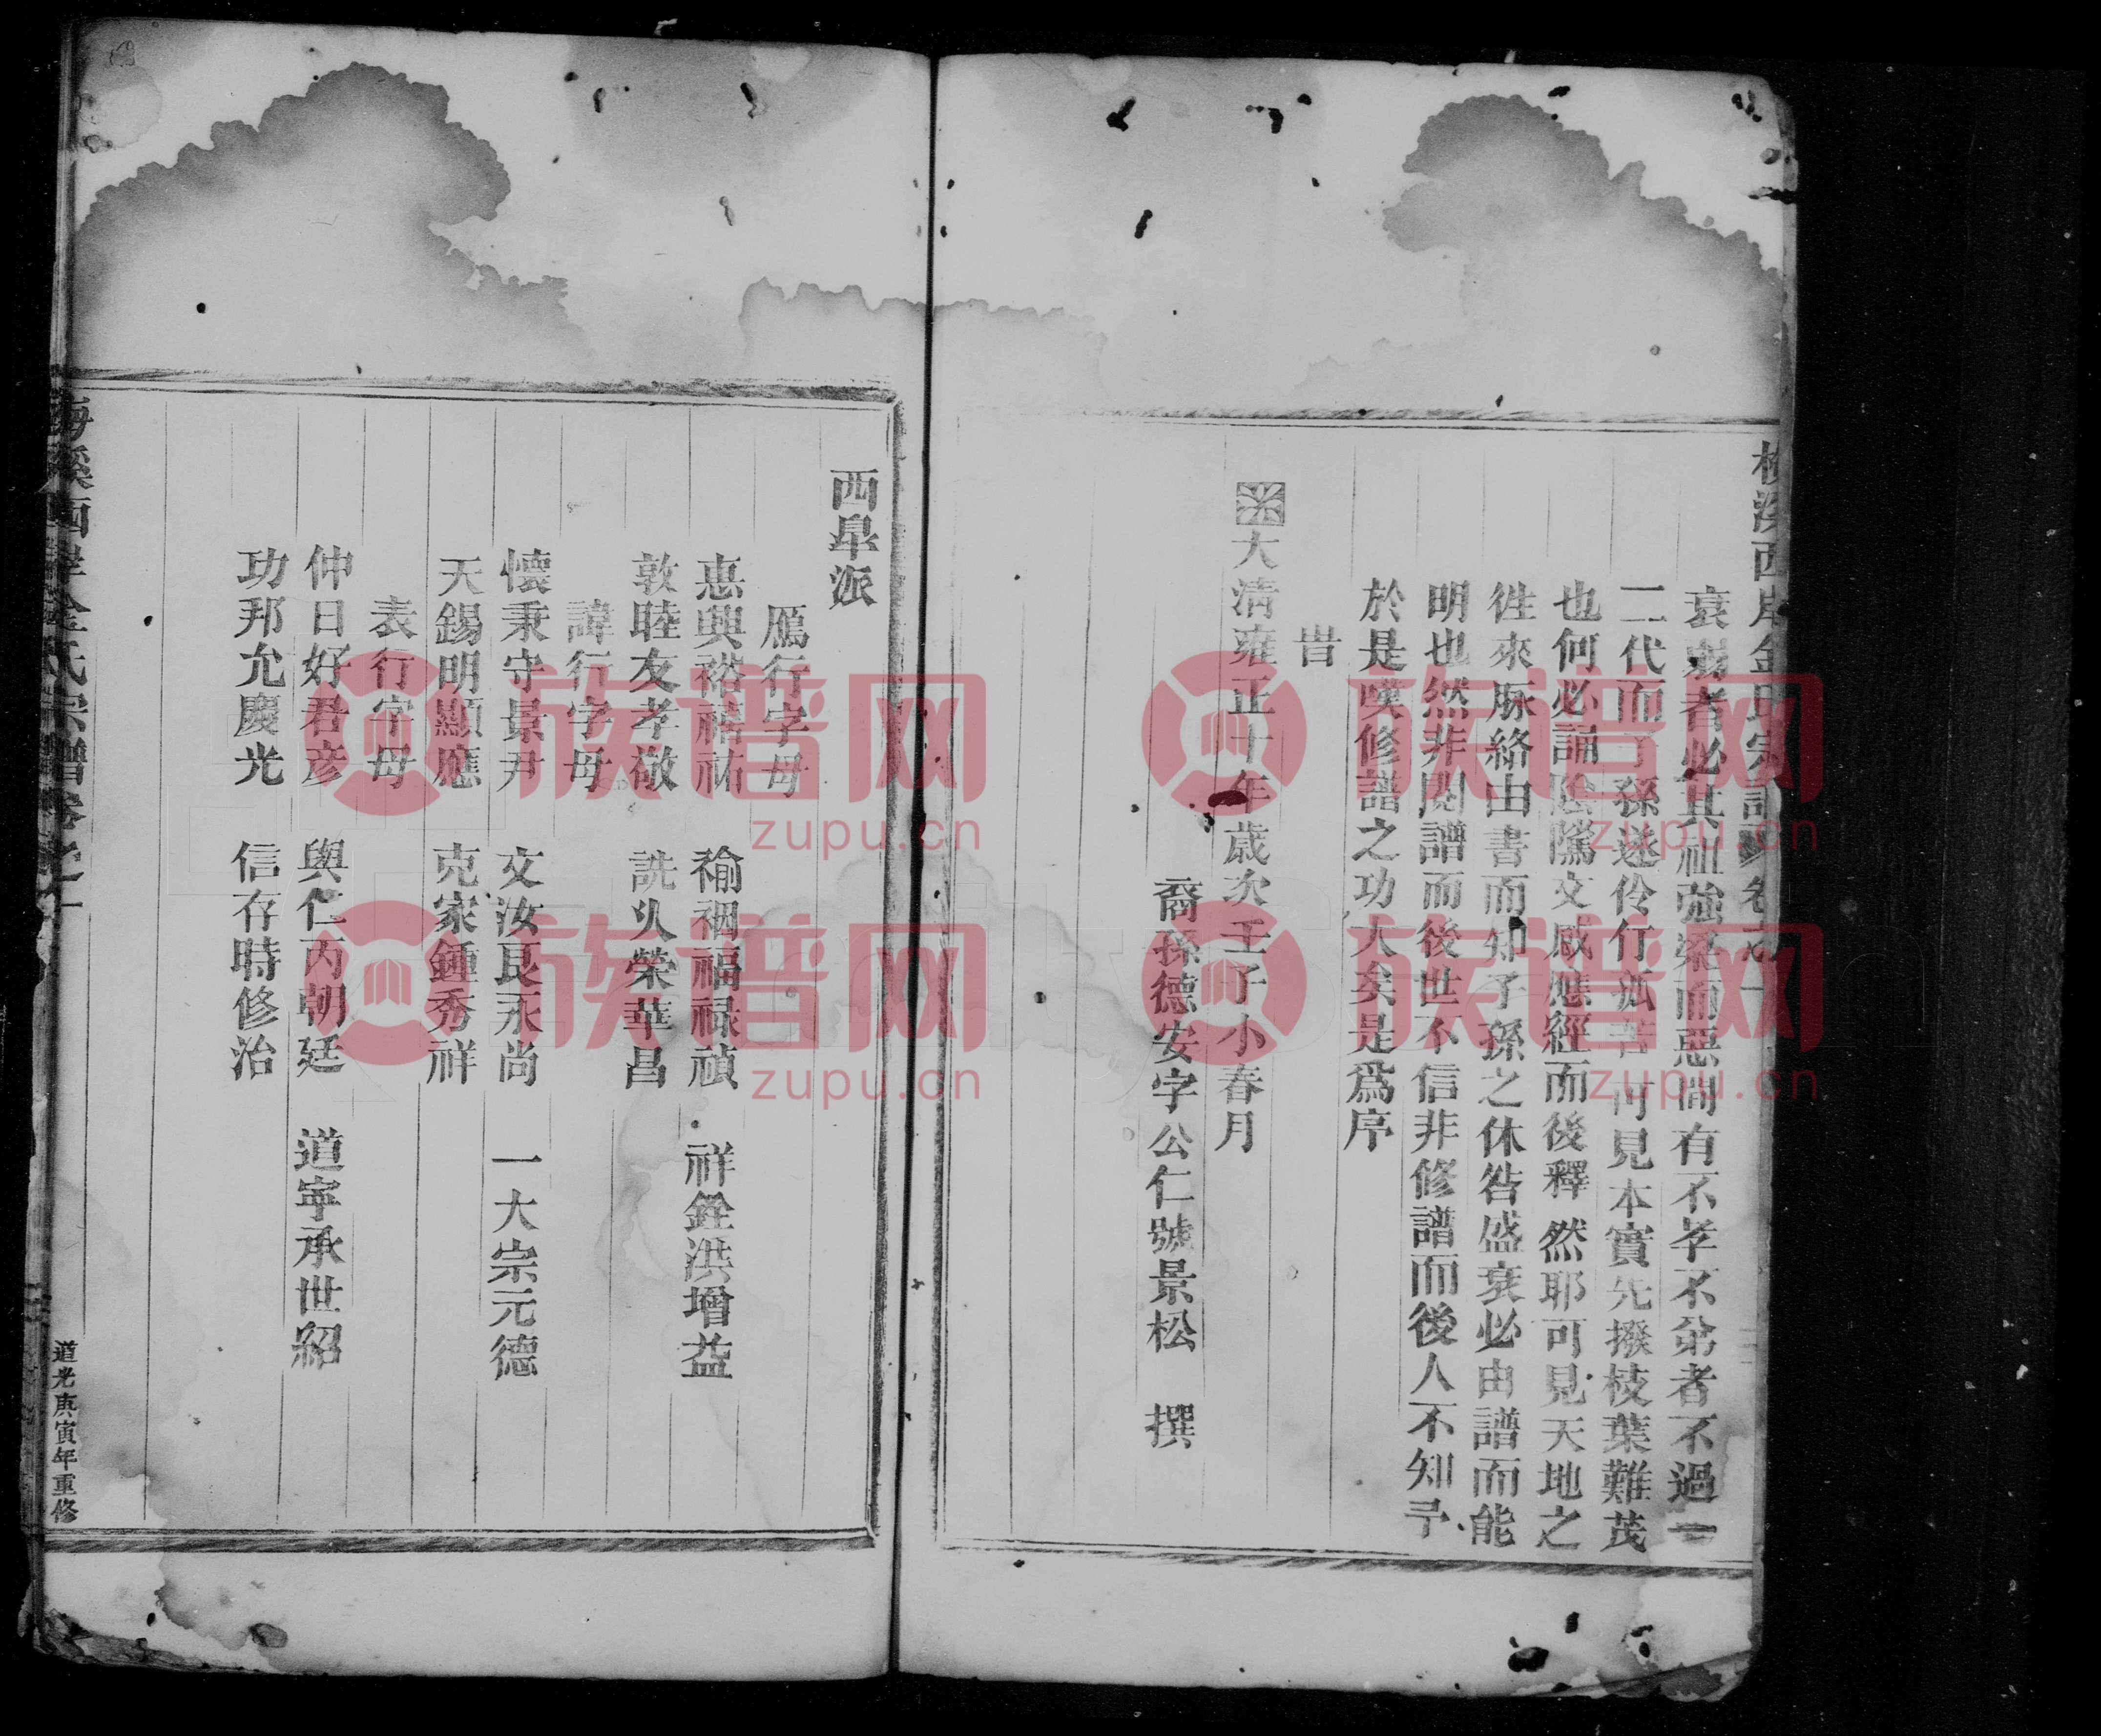 梅溪西岸金氏宗譜 卷之十
衰弱者必其祖強梁而惡間有不孝不弟者不過一
二代而子孫迷伶行孤苦可見本實先撥枝葉難茂
也何必誦陰隲文感應經而後釋然耶可見天地之
徃來脉絡由書而知子孫之休咎盛衰必由譜而能
明也然非閱譜而後世不信非修譜而後人不知予
於是嘆修譜之功大矣是爲序
旹
大清雍正十年歲次壬子小春月
裔孫德安字公仁號景松 撰
西阜派
鴈行字母
惠興裕禧祐 褕裀福禄禎 祥銓洪增益
敦睦友孝敬 詵久榮華昌
諱行字母
懷秉守景尹 文汝良永尚 一大宗元德
天錫明顯應 克家鍾秀祥
表行字母
仲日好君彦 與仁丙朝廷 道寧承世紹
功邦允慶光 信存時修治
梅溪西岸金氏宗譜卷之十
道光庚寅年重修
族谱网
zupu.cn
族谱网
zupu.cn
族谱网
zupu.cn
族谱网
zupu.cn